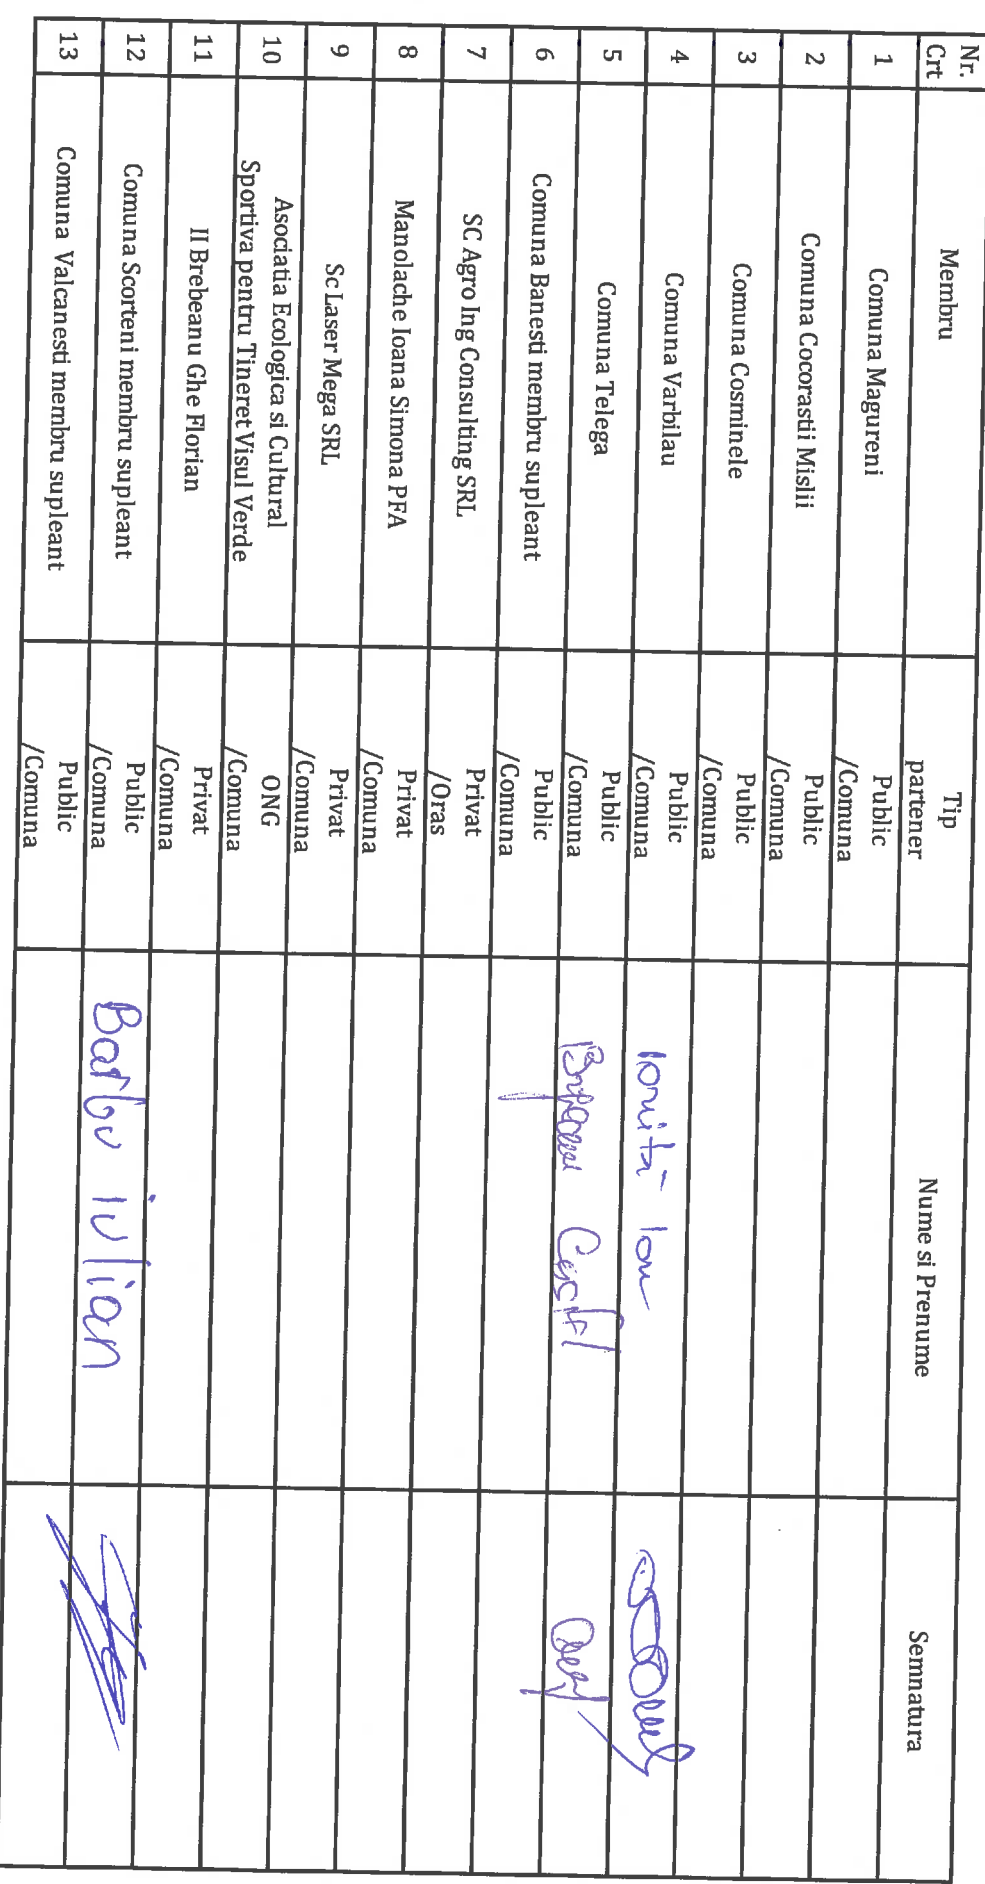 Nr. Crt Membru Tip partener Nume si Prenume Semnatura
1 Comuna Magureni Public /Comuna
2 Comuna Cocorastii Mislii Public /Comuna
3 Comuna Cosminele Public /Comuna
4 Comuna Varbilau Public /Comuna Ioniță Ion
5 Comuna Telega Public /Comuna
6 Comuna Banesti membru supleant Public /Comuna
7 SC Agro Ing Consulting SRL Privat /Oras
8 Manolache Ioana Simona PFA Privat /Comuna
9 Sc Laser Mega SRL Privat /Comuna
10 Asociatia Ecologica si Cultural Sportiva pentru Tineret Visul Verde ONG /Comuna
11 II Brebeanu Ghe Florian Privat /Comuna
12 Comuna Scorteni membru supleant Public /Comuna Barbu iulian
13 Comuna Valcanesti membru supleant Public /Comuna